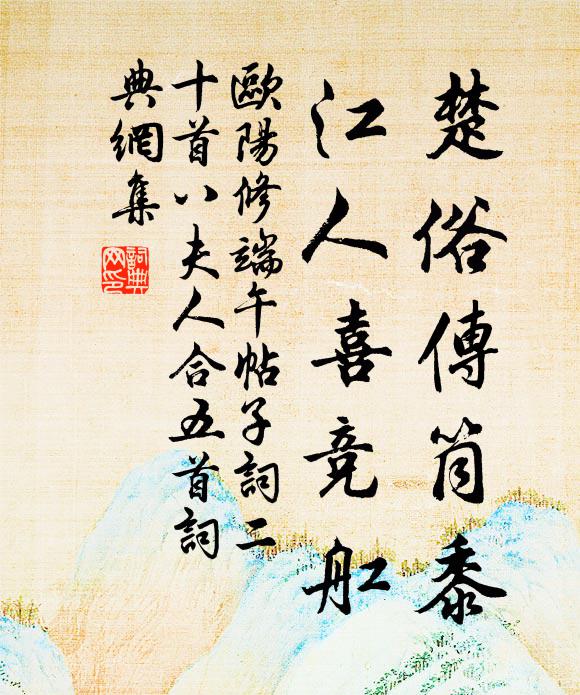 楚俗傳筒黍
江人喜竞舡
歐陽修端午帖子詞二
十首八夫人合五首詞
典網集
詞典
网印